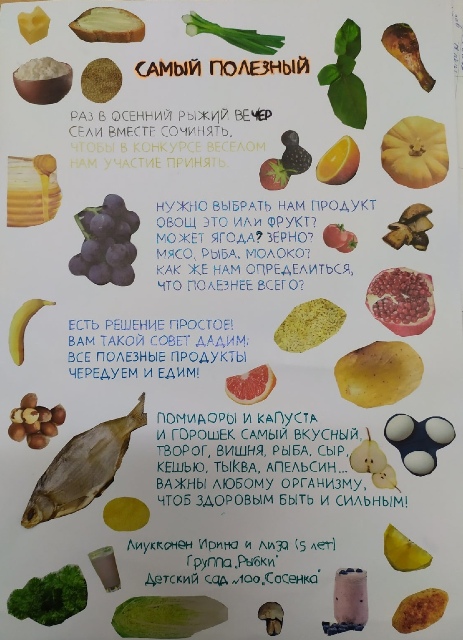 САМЫЙ ПОЛЕЗНЫЙ
РАЗ В ОСЕННИЙ РЫЖИЙ ВЕЧЕР
СЕЛИ ВМЕСТЕ СОЧИНЯТЬ,
ЧТОБЫ В КОНКУРСЕ ВЕСЕЛОМ
НАМ УЧАСТИЕ ПРИНЯТЬ.
НУЖНО ВЫБРАТЬ НАМ ПРОДУКТ
ОВОЩ ЭТО ИЛИ ФРУКТ?
МОЖЕТ ЯГОДА? ЗЕРНО?
МЯСО, РЫБА, МОЛОКО?
КАК ЖЕ НАМ ОПРЕДЕЛИТЬСЯ,
ЧТО ПОЛЕЗНЕЕ ВСЕГО?
ЕСТЬ РЕШЕНИЕ ПРОСТОЕ!
ВАМ ТАКОЙ СОВЕТ ДАДИМ:
ВСЕ ПОЛЕЗНЫЕ ПРОДУКТЫ
ЧЕРЕДУЕМ И ЕДИМ!
ПОМИДОРЫ И КАПУСТА
И ГОРОШЕК САМЫЙ ВКУСНЫЙ,
ТВОРОГ, ВИШНЯ, РЫБА, СЫР,
КЕШЬЮ, ТЫКВА, АПЕЛЬСИН...
ВАЖНЫ ЛЮБОМУ ОРГАНИЗМУ,
ЧТОБ ЗДОРОВЫМ БЫТЬ И СИЛЬНЫМ!
Лиукконен Ирина и Лиза (5 лет)
Группа „Рыбки"
Детский сад №100 „Сосенка"